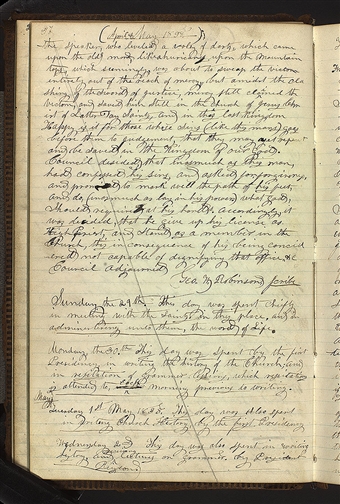 37
(April & May 1838)
the speaker, who leveled a volly of darts, which came
upon the old man, like a hurricane upon the mountain
tops, which seemingly, was about to sweep the victim
entirely out of the reach of mercy, but amidst the cla
shing of the sword of Justice, mercy still claimed the
victim, and saved him still in the church of Jesus Chr
ist of Latter Day Saints, and in this last kingdom
Happy is it for those whose sins (like this mans) goes
before them to Judgement, that they may yet repent
and be saved in the Kingdom of our God.
Council decided, that inasmuch as this man,
had confessed his sins, and asked for forgiveness,
and promised to mark well the path of his feet,
and do, (inasmuch as lay in his power) what God,
Should require at his hand. accordingly, it
was decided, that he give up his license as
High Priest, and stand as a member in the
Church, this in consequence of his being concid
ered not capable of dignifying that office, &c
Council Adjourned
Geo. W. Robinson, Scribe
Sunday the 29th This day was spent chiefly
in meeting with the Saints in this place, and in
administering unto them, the word of Life.
Monday the 30th This day was spent by the first
Presidency in writing the history of the Church, and
in recitation of grammer lessons, which recitation
is attended to, each morning previous to writing.
May
Tuesday 1st May 1838. This day was also spent
in writing Church History, by the first Presidency
Wednesday 2d This day was also spent in writing
history, and lectures on grammer, by President
Rigdon